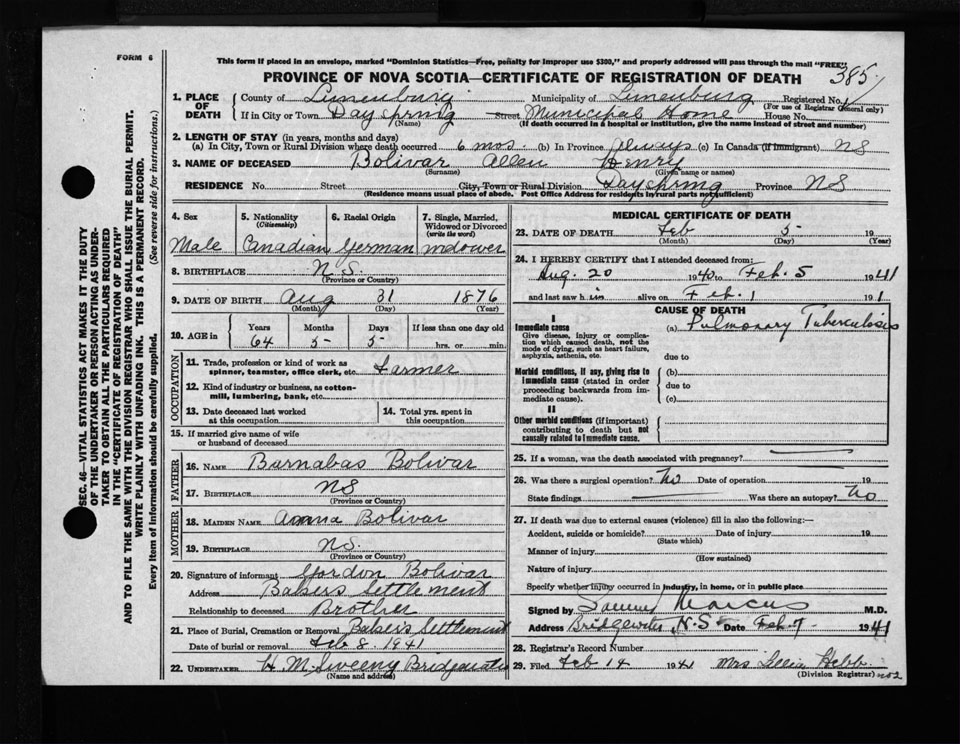 FORM 6
This form if placed in an envelope, marked "Dominion Statistics—Free, penalty for improper use $300," and properly addressed will pass through the mail "FREE"
PROVINCE OF NOVA SCOTIA—CERTIFICATE OF REGISTRATION OF DEATH
385
1. PLACE OF DEATH County of Lunenburg Municipality of Lunenburg Registered No.
(For use of Registrar General only)
If in City or Town Dayspring Street Municipal Home House No.
(Name) (If death occurred in a hospital or institution, give the name instead of street and number)
2. LENGTH OF STAY (in years, months and days)
(a) In City, Town or Rural Division where death occurred 6 mos. (b) In Province always (c) In Canada (if immigrant) NS
3. NAME OF DECEASED Bolivar Allen Henry
(Surname) (Given name or names)
RESIDENCE No. Street City, Town or Rural Division Dayspring Province NS
(Residence means usual place of abode. Post Office Address for residents in rural parts not sufficient)
4. Sex Male
5. Nationality (Citizenship) Canadian
6. Racial Origin German
7. Single, Married, Widowed or Divorced (write the word) widower
8. BIRTHPLACE N.S.
(Province or Country)
9. DATE OF BIRTH Aug 31 1876
(Month) (Day) (Year)
10. AGE in Years 64 Months 5 Days 5 If less than one day old hrs. or min.
OCCUPATION
11. Trade, profession or kind of work as spinner, teamster, office clerk, etc. Farmer
12. Kind of industry or business, as cotton-mill, lumbering, bank, etc.
13. Date deceased last worked at this occupation
14. Total yrs. spent in this occupation
15. If married give name of wife or husband of deceased
FATHER
16. NAME Barnabas Bolivar
17. BIRTHPLACE NS
(Province or Country)
MOTHER
18. MAIDEN NAME Anna Bolivar
19. BIRTHPLACE NS.
(Province or Country)
20. Signature of informant Gordon Bolivar
Address Balsers Settlement
Relationship to deceased Brother
21. Place of Burial, Cremation or Removal Balsers Settlement
Date of burial or removal Feb 8. 1941
22. UNDERTAKER H M Sweeny Bridgewater
(Name and address)
MEDICAL CERTIFICATE OF DEATH
23. DATE OF DEATH Feb 5 19
(Month) (Day) (Year)
24. I HEREBY CERTIFY that I attended deceased from:
Aug. 20 1940 to Feb. 5 1941
and last saw him alive on Feb. 1 191
CAUSE OF DEATH
I
Immediate cause
Give disease, injury or complication which caused death, not the mode of dying, such as heart failure, asphyxia, asthenia, etc.
(a) Pulmonary Tuberculosis
due to
Morbid conditions, if any, giving rise to immediate cause (stated in order proceeding backwards from immediate cause).
(b)
due to
(c)
II
Other morbid conditions (if important) contributing to death but not causally related to immediate cause.
25. If a woman, was the death associated with pregnancy?
26. Was there a surgical operation? No Date of operation 19
State findings Was there an autopsy? No
27. If death was due to external causes (violence) fill in also the following:—
Accident, suicide or homicide? Date of injury 19
(State which)
Manner of injury
(How sustained)
Nature of injury
Specify whether injury occurred in industry, in home, or in public place
Signed by Samuel Marcus M.D.
Address Bridgewater N.S Date Feb. 7 1941
28. Registrar's Record Number
29. Filed Feb 14 1941 Mrs Hebb
(Division Registrar) No 2
SEC. 46—VITAL STATISTICS ACT MAKES IT THE DUTY
OF THE UNDERTAKER OR PERSON ACTING AS UNDER-
TAKER TO OBTAIN ALL THE PARTICULARS REQUIRED
IN THE "CERTIFICATE OF REGISTRATION OF DEATH"
AND TO FILE THE SAME WITH THE DIVISION REGISTRAR WHO SHALL ISSUE THE BURIAL PERMIT.
WRITE PLAINLY WITH UNFADING INK. THIS IS A PERMANENT RECORD.
Every item of information should be carefully supplied. (See reverse side for instructions.)